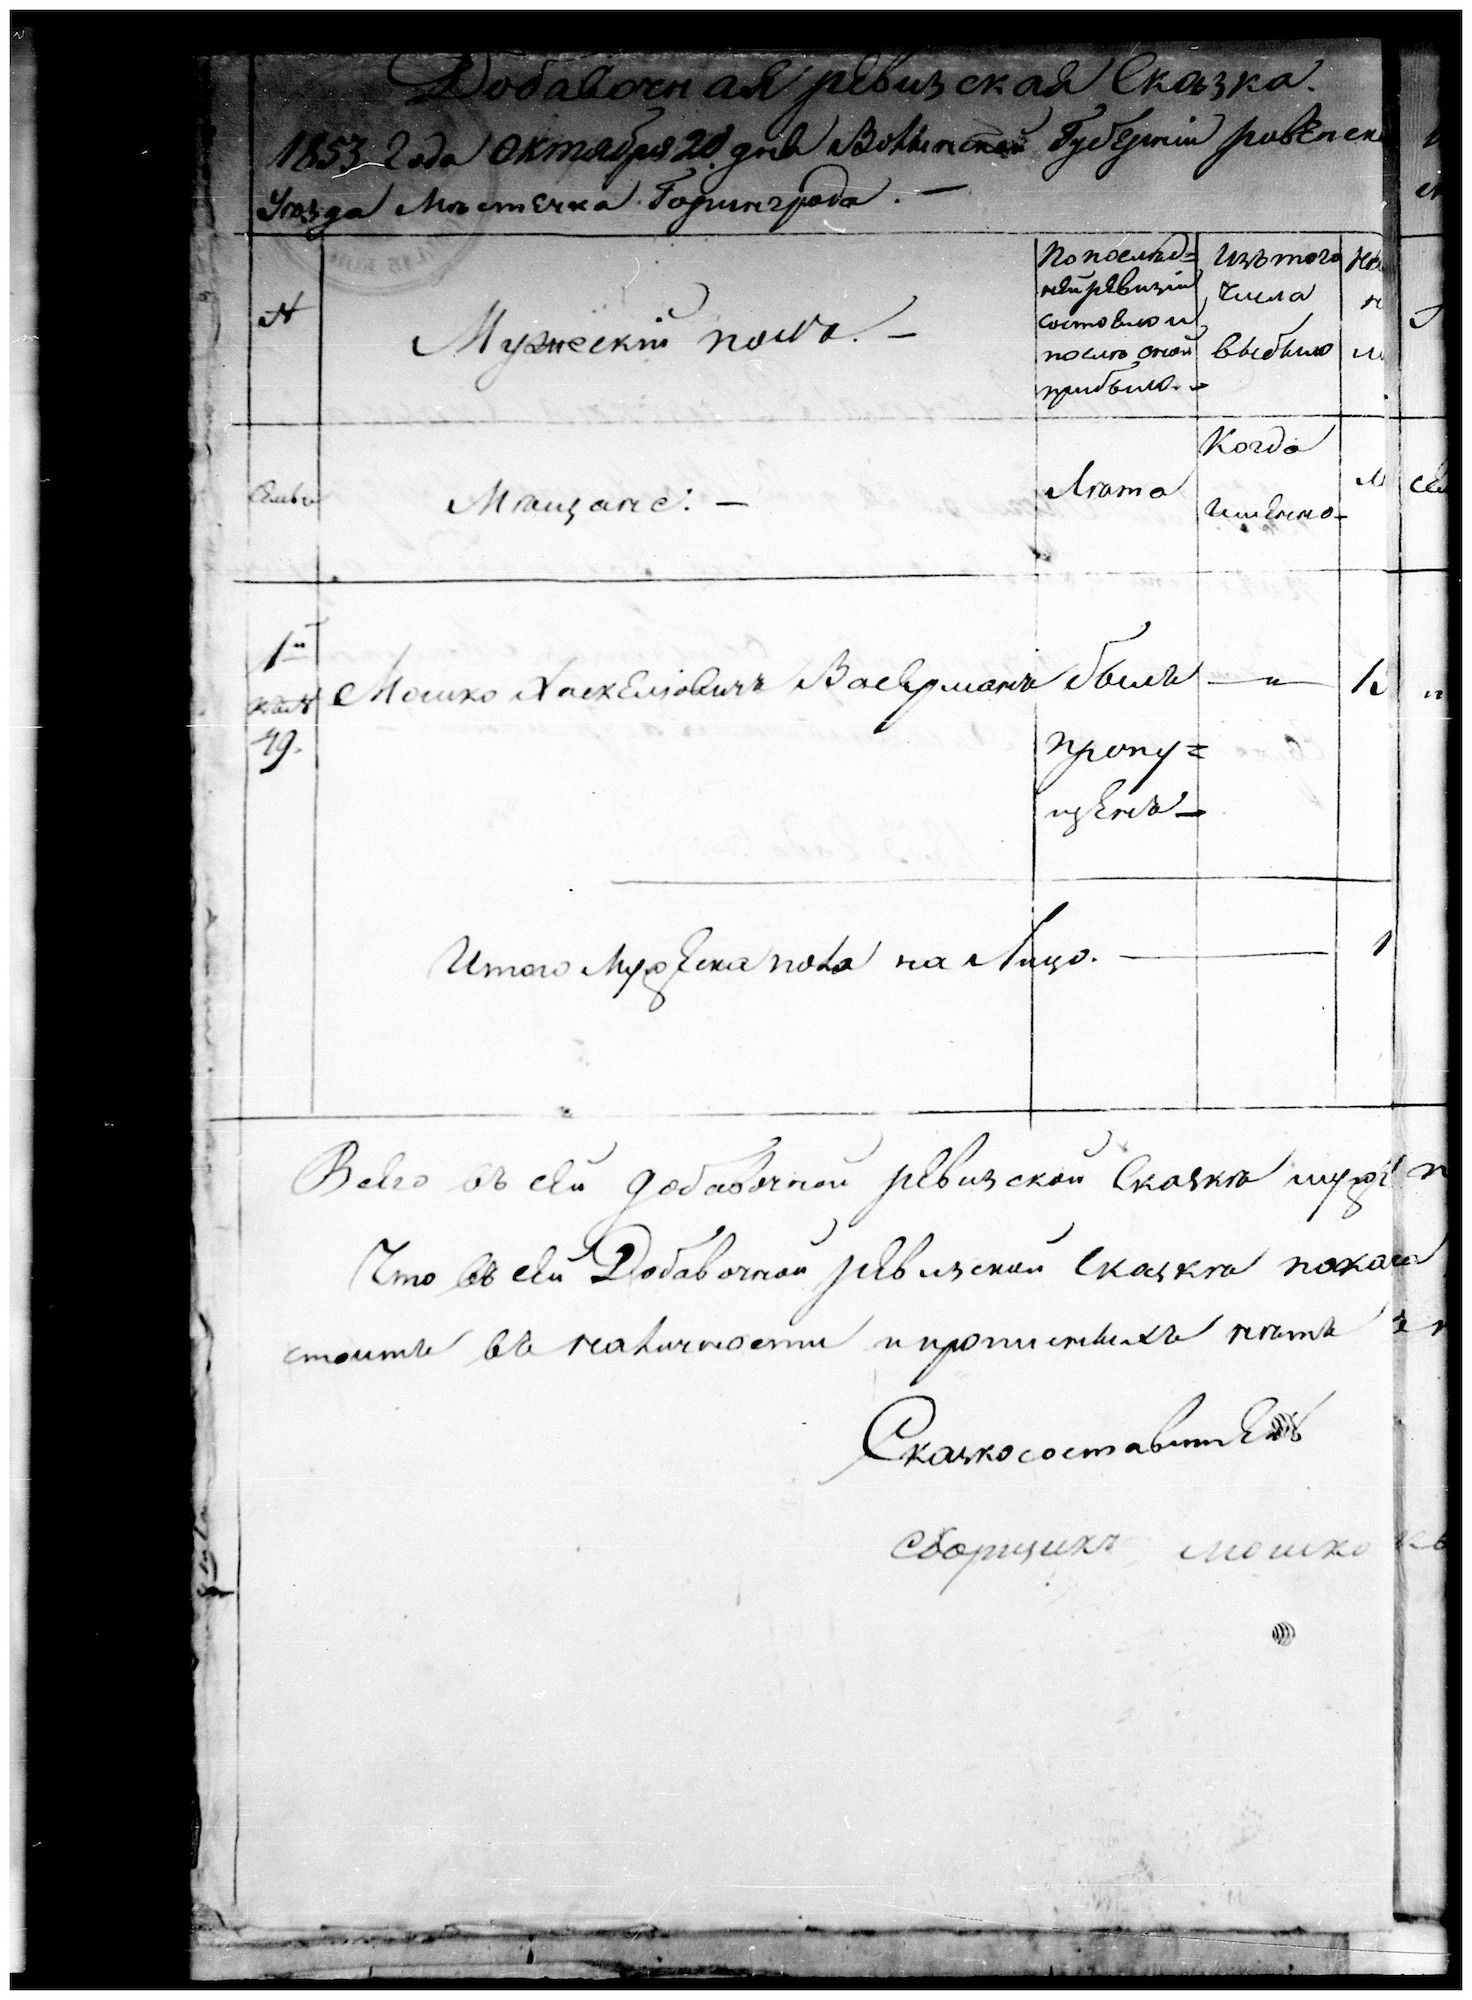 Добавочная ревизская Сказка.
1853 Года Октября 20 дня Волынской Губерніи ровенска
Уѣзда Мѣстечка Горинграда. —
№
Мужескій полъ. —
По послѣд=
ней ревизіи
состояло и
послѣ оной
прибыло. —
Изъ того
числа
выбыло
Семьи
Мѣщане: —
Лѣта
Когда
Именно —
1й
къ №
49.
Мошко Хаскелiовичъ Васерманъ
былъ
пропу=
щенъ —
— „ —
Итого Мужеска пола на Лицо. — 1
Всего въ сей добавочной ревизской Сказкѣ муже
Что въ сей Добавочной ревизской Сказкѣ показа
стоитъ въ наличности и прописныхъ нѣтъ
Сказкосоставитель
сборщикъ мошко